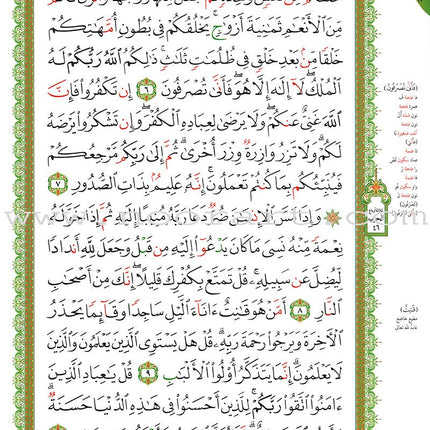 مِّنَ ٱلْأَنْعَٰمِ ثَمَٰنِيَةَ أَزْوَٰجٍ ۚ يَخْلُقُكُمْ فِى بُطُونِ أُمَّهَٰتِكُمْ
خَلْقًا مِّنۢ بَعْدِ خَلْقٍ فِى ظُلُمَٰتٍ ثَلَٰثٍ ۚ ذَٰلِكُمُ ٱللَّهُ رَبُّكُمْ لَهُ
ٱلْمُلْكُ ۖ لَآ إِلَٰهَ إِلَّا هُوَ ۖ فَأَنَّىٰ تُصْرَفُونَ ٦ إِن تَكْفُرُوا۟ فَإِنَّ
ٱللَّهَ غَنِىٌّ عَنكُمْ ۖ وَلَا يَرْضَىٰ لِعِبَادِهِ ٱلْكُفْرَ ۖ وَإِن تَشْكُرُوا۟ يَرْضَهُ
لَكُمْ ۗ وَلَا تَزِرُ وَازِرَةٌ وِزْرَ أُخْرَىٰ ۗ ثُمَّ إِلَىٰ رَبِّكُم مَّرْجِعُكُمْ
فَيُنَبِّئُكُم بِمَا كُنتُمْ تَعْمَلُونَ ۚ إِنَّهُۥ عَلِيمٌۢ بِذَاتِ ٱلصُّدُورِ ٧
۞ وَإِذَا مَسَّ ٱلْإِنسَٰنَ ضُرٌّ دَعَا رَبَّهُۥ مُنِيبًا إِلَيْهِ ثُمَّ إِذَا خَوَّلَهُۥ
نِعْمَةً مِّنْهُ نَسِىَ مَا كَانَ يَدْعُوٓا۟ إِلَيْهِ مِن قَبْلُ وَجَعَلَ لِلَّهِ أَندَادًا
لِّيُضِلَّ عَن سَبِيلِهِۦ ۚ قُلْ تَمَتَّعْ بِكُفْرِكَ قَلِيلًا ۖ إِنَّكَ مِنْ أَصْحَٰبِ
ٱلنَّارِ ٨ أَمَّنْ هُوَ قَٰنِتٌ ءَانَآءَ ٱلَّيْلِ سَاجِدًا وَقَآئِمًا يَحْذَرُ
ٱلْءَاخِرَةَ وَيَرْجُوا۟ رَحْمَةَ رَبِّهِۦ ۗ قُلْ هَلْ يَسْتَوِى ٱلَّذِينَ يَعْلَمُونَ وَٱلَّذِينَ
لَا يَعْلَمُونَ ۗ إِنَّمَا يَتَذَكَّرُ أُو۟لُوا۟ ٱلْأَلْبَٰبِ ٩ قُلْ يَٰعِبَادِ ٱلَّذِينَ
ءَامَنُوا۟ ٱتَّقُوا۟ رَبَّكُمْ ۚ لِلَّذِينَ أَحْسَنُوا۟ فِى هَٰذِهِ ٱلدُّنْيَا حَسَنَةٌ ۗ